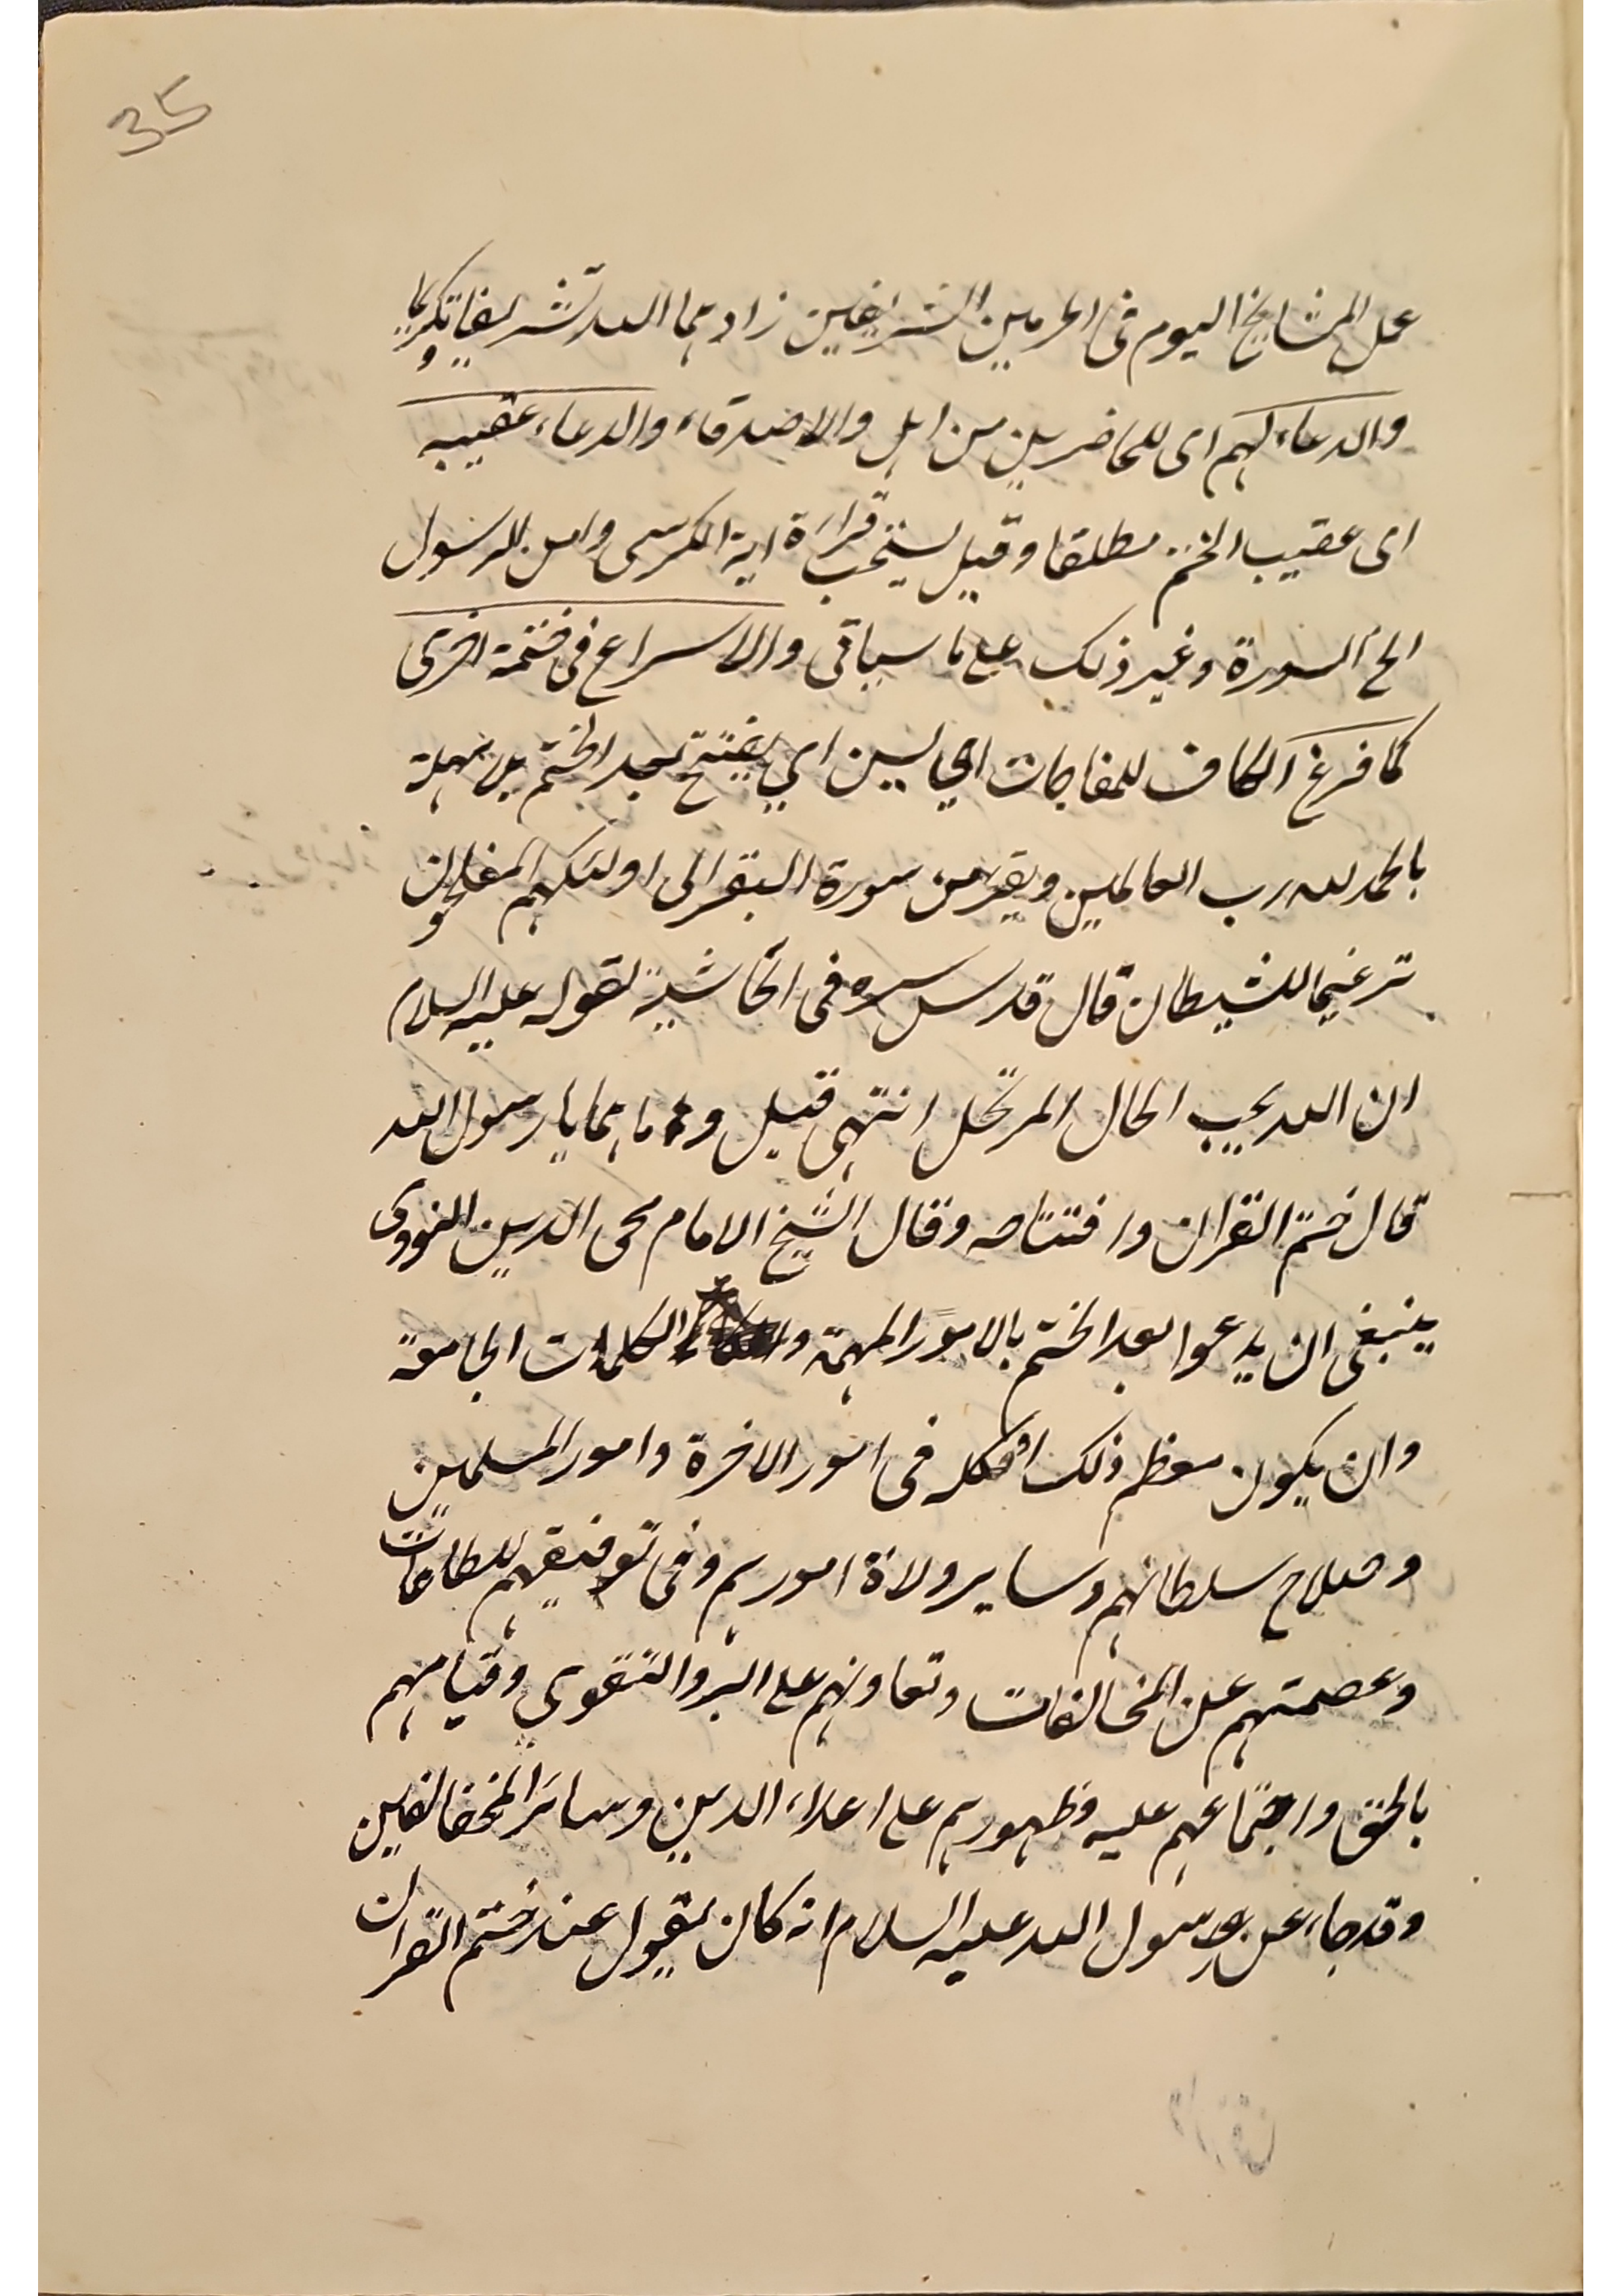 35
عمل المشايخ اليوم فى الحرمين الشريفين زادهما الله تشريفا وتكريما
والدعاء لهم اى للحاضرين من اهل والاصدقاء والدعاء عقيبه
اى عقيب الختم مطلقا وقيل يستحب قراءة اية الكرسى وامن الرسول
الخ السورة وغير ذلك على ما سياتى والاسراع فى ختمة اخرى
كما فرغ الكاف للمفاجات اى يفتتح بعد الختم بلا مهلة
بالحمد لله رب العالمين ويقرء من سورة البقر الى اولئك هم المفلحون
ترغيما للشيطان قال قدس سره فى الحاشية لقوله عليه السلام
ان الله يحب الحال المرتحل انتهى قيل وما هما يا رسول الله
قال ختم القران وافتتاحه وقال الشيخ الامام محى الدين النووى
ينبغى ان يدعوا بعد الختم بالامور المهمة والكلمات الجامعة
وان يكون معظم ذلك او كله فى امور الاخرة وامور المسلمين
وصلاح سلطانهم وساير ولاة امورهم وفى توفيقهم للطاعات
وعصمتهم عن المخالفات وتعاونهم على البر والتقوى وقيامهم
بالحق واجتماعهم عليه وظهورهم على اعداء الدين وسائر المخالفين
وقد جاء عن رسول الله عليه السلام انه كان يقول عند ختم القران